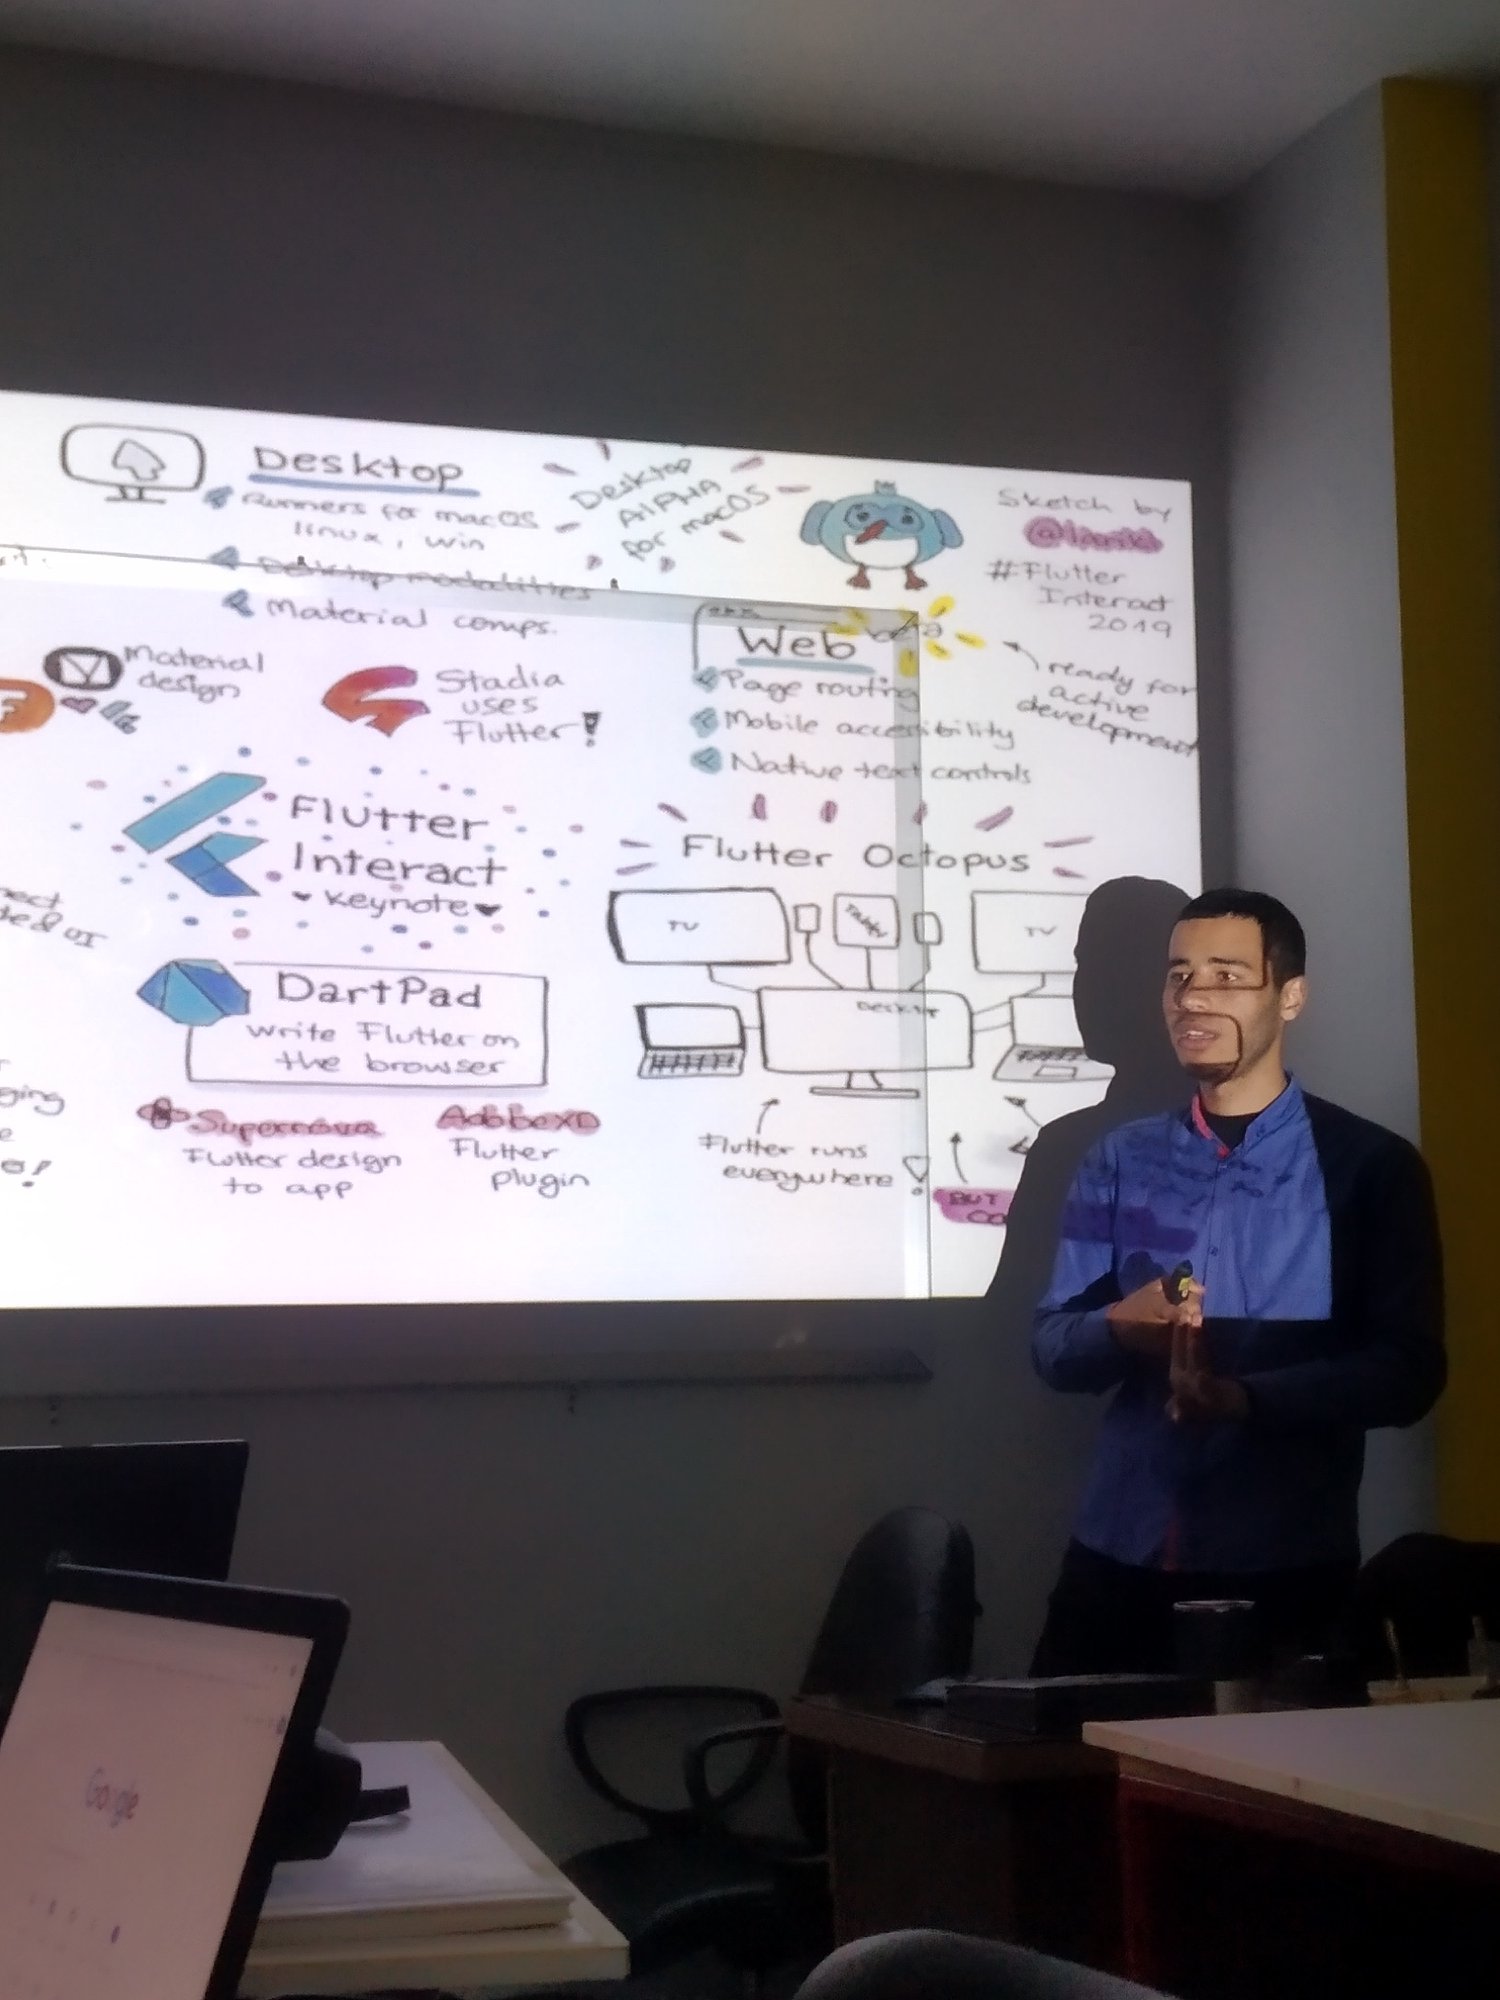 Desktop
Runners for macOS
linux, win
Desktop modalities
Material comps.
Desktop
AlPHA
for macOS
Sketch by
#Flutter
Interact
2019
Material
design
Stadia
uses
Flutter!
Web
Page routing
Mobile accessibility
Native text controls
ready for
active
development
Flutter
Interact
Keynote
Flutter Octopus
TV
TV
Desktop
DartPad
Write Flutter on
the browser
Supernova
Flutter design
to app
AdobeXD
Flutter
plugin
Flutter runs
everywhere!
BUT
Google